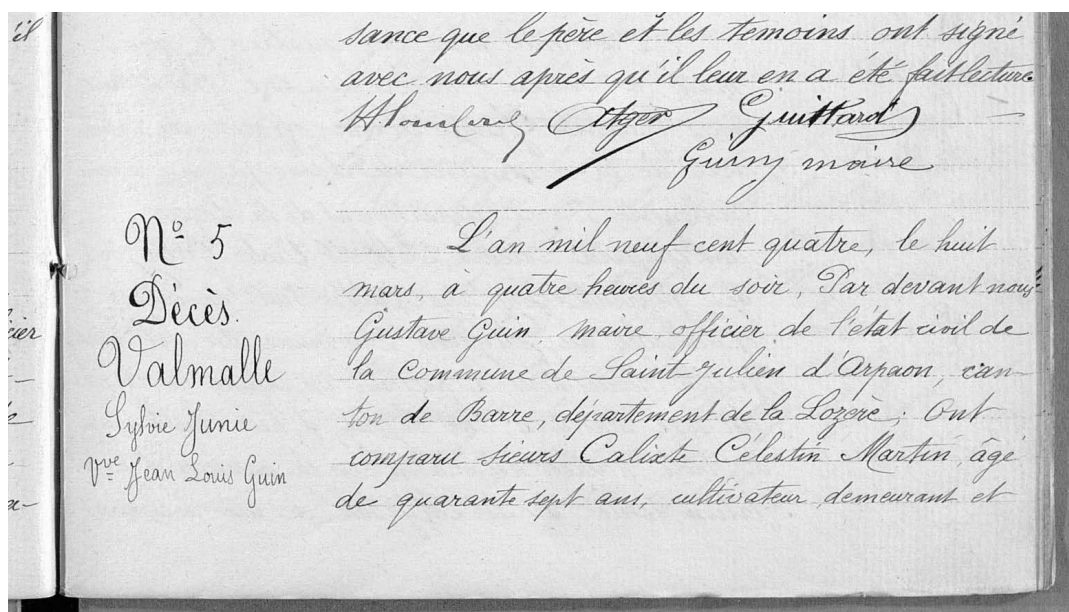 il
sance que le père et les temoins ont signé
avec nous après qu'il leur en a été fait lecture
Atger Guittard
Guin maire
N° 5
Décès.
Valmalle
Sylvie Junie
Vve Jean Louis Guin
L'an mil neuf cent quatre, le huit
mars, à quatre heures du soir, Par devant nous
Gustave Guin, maire, officier de l'état civil de
la commune de Saint Julien d'Arpaon, can-
ton de Barre, département de la Lozère; Ont
comparu sieurs Calixte Célestin Martin, âgé
de quarante sept ans, cultivateur, demeurant et